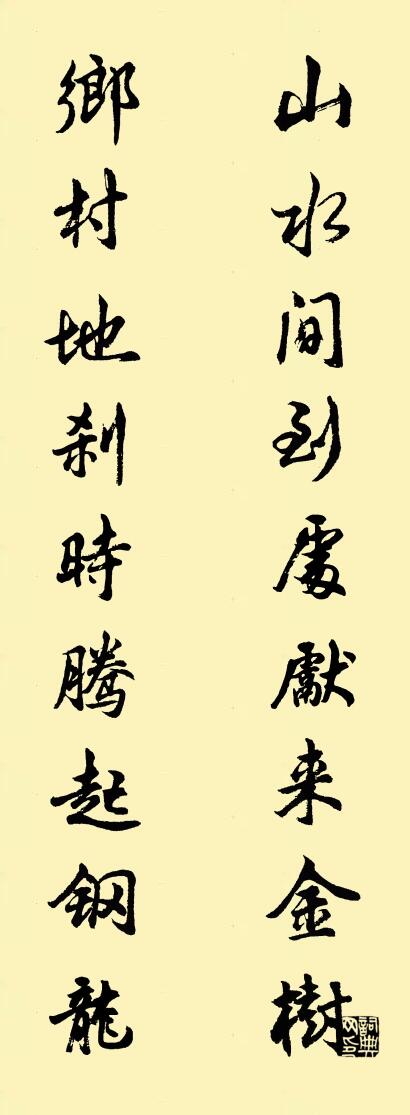 山水间到處獻来金樹
鄉村地刹時腾起鋼龍
詞典网印